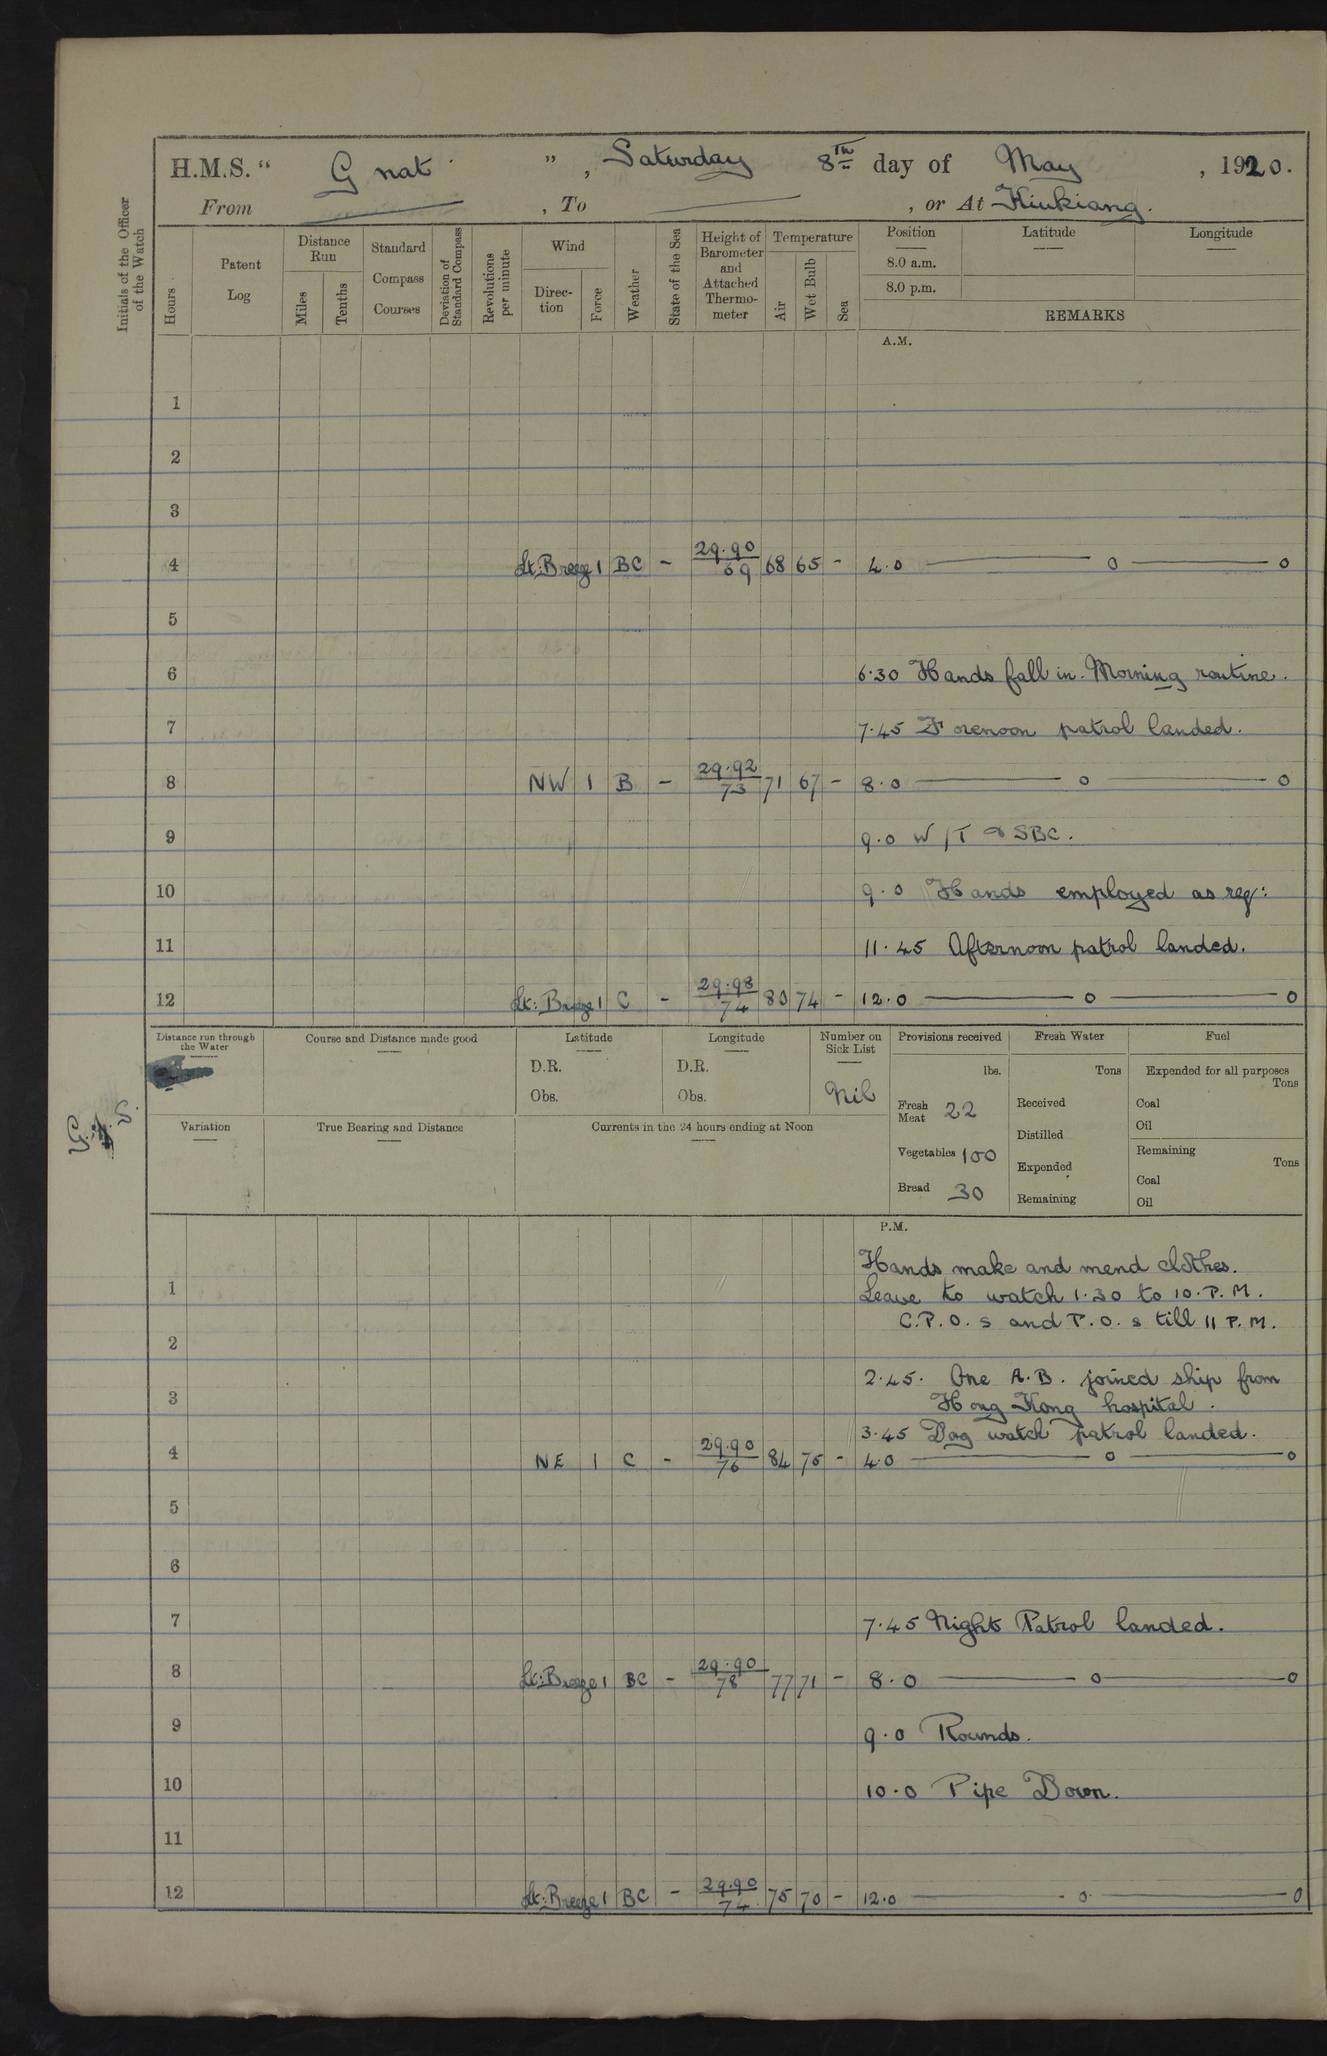 H.M.S. “ Gnat ”, Saturday 8th day of May , 1920.
From , To , or At Kiukiang.
Initials of the Officer of the Watch
Hours
Patent Log
Distance Run
Miles
Tenths
Standard Compass Courses
Deviation of Standard Compass
Revolutions per minute
Wind
Direction
Force
Weather
State of the Sea
Height of Barometer and Attached Thermometer
Temperature
Air
Wet Bulb
Sea
Position
8.0 a.m.
8.0 p.m.
Latitude
Longitude
REMARKS
A.M.
1
2
3
4 Lt: Breeze 1 BC - 29.90 69 68 65 - 4.0 — o — o
5
6 6.30 Hands fall in. Morning routine.
7 7.45 Forenoon patrol landed.
8 NW 1 B - 29.92 73 71 67 - 8.0 — o — o
9 9.0 W/T & SBC.
10 9.0 Hands employed as req:
11 11.45 Afternoon patrol landed.
12 Lt: Breeze 1 C - 29.98 74 80 74 - 12.0 — o — o
Distance run through the Water
Course and Distance made good
Latitude
D.R.
Obs.
Longitude
D.R.
Obs.
Number on Sick List
Nil
Provisions received
lbs.
Fresh Meat 22
Vegetables 100
Bread 30
Fresh Water
Tons
Received
Distilled
Expended
Remaining
Fuel
Expended for all purposes
Tons
Coal
Oil
Remaining
Tons
Coal
Oil
Variation
True Bearing and Distance
Currents in the 24 hours ending at Noon
P.M.
Hands make and mend clothes.
1 Leave to watch 1.30 to 10.P.M.
C.P.O.s and P.O.s till 11 P.M.
2
2.45. One A.B. joined ship from
3 Hong Kong hospital.
3.45 Dog watch patrol landed.
4 NE 1 C - 29.90 76 84 75 - 4.0 — o — o
5
6
7 7.45 Night Patrol landed.
8 Lt: Breeze 1 BC - 29.90 78 77 71 - 8.0 — o — o
9 9.0 Rounds.
10 10.0 Pipe Down.
11
12 Lt: Breeze 1 BC - 29.90 74 75 70 - 12.0 — o — o